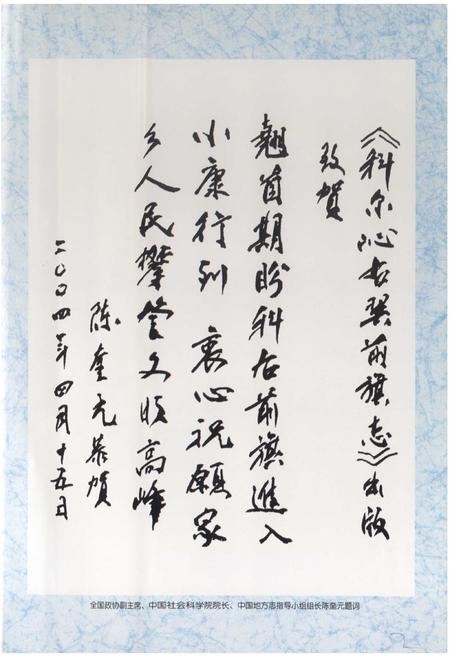 《科尔沁右翼前旗志》出版
致贺
翘首期盼科右前旗进入
小康行列 衷心祝愿家
乡人民攀登文明高峰
陈奎元恭贺
二〇〇四年四月十五日
全国政协副主席、中国社会科学院院长、中国地方志指导小组组长陈奎元题词